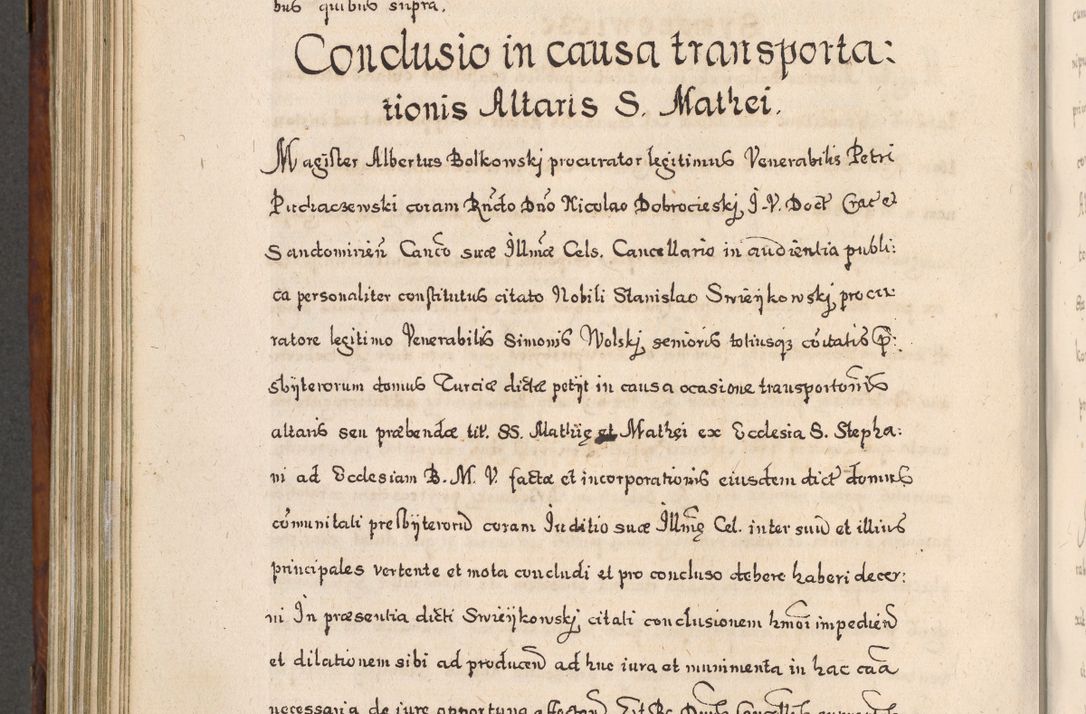 bus quibus supra.
Conclusio in causa transporta:
tionis Altaris S. Mathei.
Magister Albertus Bolkowskj procurator legitimus Venerabilis Petri
Puchaczewski coram Rndo Dno Nicolao Dobrocieskj, J.V. Doct Crac et
Sandomirien Canco suæ Illmæ Cels. Cancellario in audientia publi:
ca personaliter constitutus citato Nobili Stanislao Swieÿkowskj, procu
ratore legitimo Venerabilis Simonis Wolskj, senioris totiusq coitatis P:
sbÿterorum domus Turciæ dictæ petÿt in causa ocasione transportonis
altaris seu præbendæ tit. SS. Mathię et Mathei ex Ecclesia S. Stepha:
ni ad Ecclesiam B. M. V. factæ et incorporationis eiusdem dict domus
comunitati presbÿteroru coram Juditio suæ Illmę Cel. inter suu et illius
principales vertente et mota concludi et pro concluso debere haberi decer:
ni In præsentia dicti Swieÿkowskj, citati conclusionem hmoi impedien
et dilationem sibi ad producen ad huc iura et munimenta in hac caa
necessaria de jure opportuna affectan